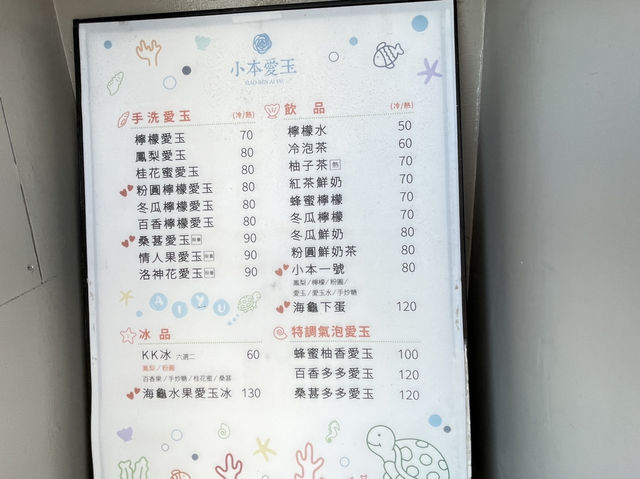 小本愛玉
XIAO BEN AI YU
手洗愛玉 (冷/熱)
檸檬愛玉 70
鳳梨愛玉 80
桂花蜜愛玉 80
粉圓檸檬愛玉 80
冬瓜檸檬愛玉 80
百香檸檬愛玉 80
桑葚愛玉 90
情人果愛玉 90
洛神花愛玉 90
AIYU
冰品
KK冰 六選二 60
鳳梨/粉圓
百香果/手炒糖/桂花蜜/桑葚
海龜水果愛玉冰 130
飲品 (冷/熱)
檸檬水 50
冷泡茶 60
柚子茶 熱 70
紅茶鮮奶 70
蜂蜜檸檬 70
冬瓜檸檬 70
冬瓜鮮奶 80
粉圓鮮奶茶 80
小本一號 80
鳳梨/檸檬/粉圓/
愛玉/愛玉水/手炒糖
海龜下蛋 120
特調氣泡愛玉
蜂蜜柚香愛玉 100
百香多多愛玉 120
桑葚多多愛玉 120